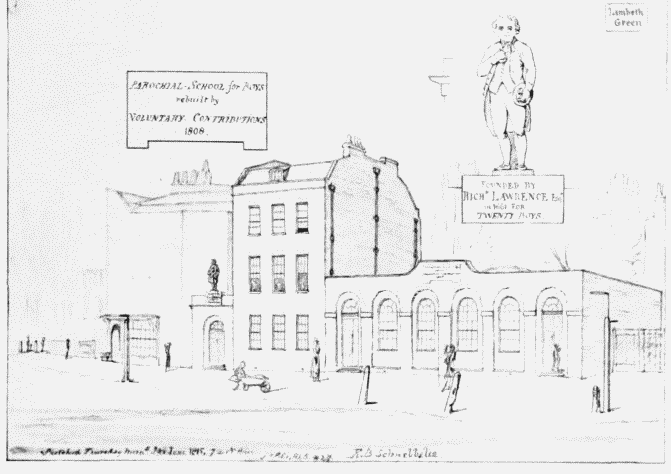 Lambeth
Green
PAROCHIAL SCHOOL for BOYS
rebuilt by
VOLUNTARY CONTRIBUTIONS
1808.
FOUNDED BY
RICHD LAWRENCE Esqr
in 1661 FOR
TWENTY BOYS
Sketched Thursday
R.B. Schnebbelie